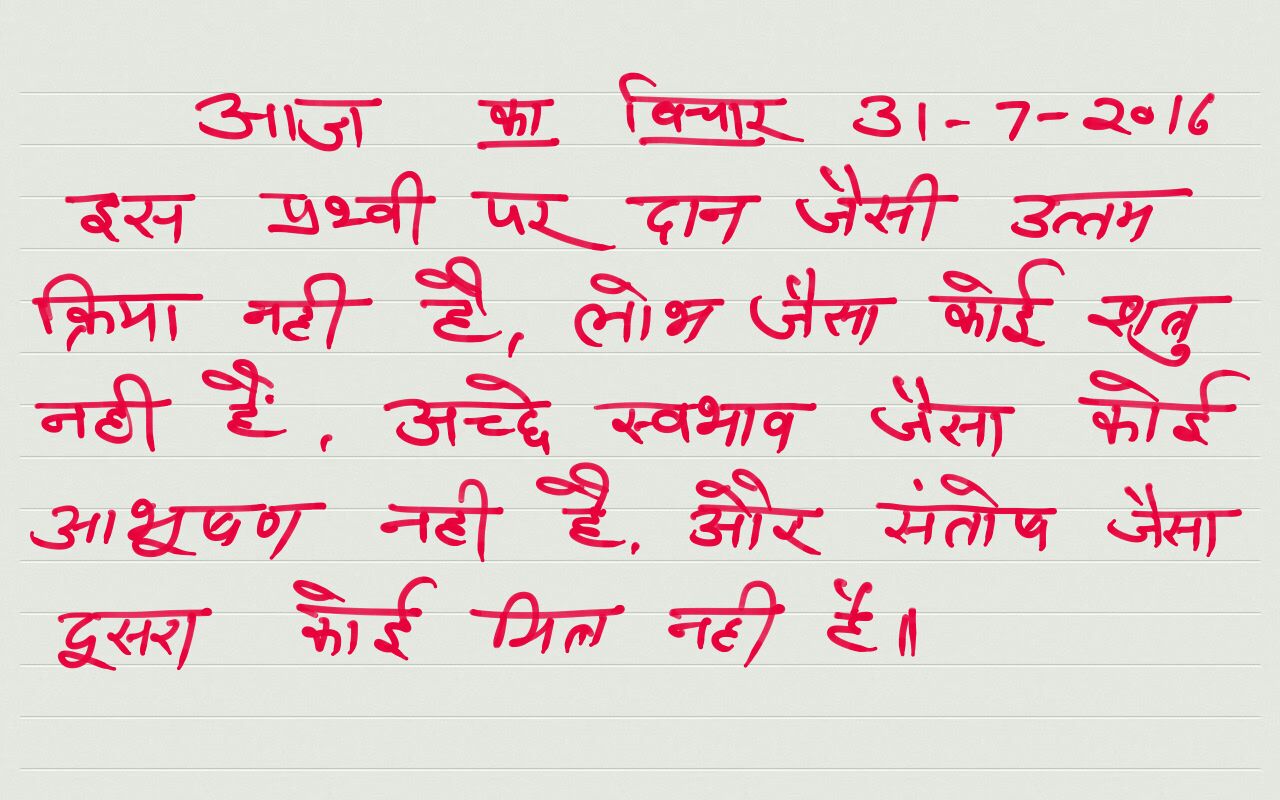 आज का विचार 31-7-2016
इस प्रथ्वी पर दान जैसी उत्तम
क्रिया नही है, लोभ जैसा कोई शत्रु
नही हैं, अच्छे स्वभाव जैसा कोई
आभूषण नही है, और संतोष जैसा
दूसरा कोई मित्र नही है॥